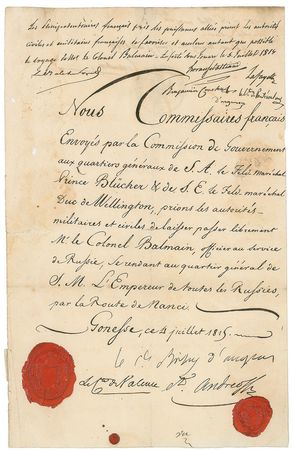 Les Plénipotentiaires français près des puissances alliées prient les autorités
civiles et militaires françaises de favoriser et accélérer autant que possible
le voyage de M. le Colonel Balmain. le 6 Juillet 1815
Lafayette
Benjamin Constant
Nous Commissaires français
Envoyés par la Commission de Gouvernement
aux quartiers généraux de S. A. le Feld-maréchal
Prince Blücher & de S. E. le Feld maréchal
Duc de Wellington, prions les autorités
militaires et civiles de laisser passer librement
Mr. le Colonel Balmain, officier au service
de Russie, se rendant au quartier général de
S. M. L'Empereur de toutes les Russies,
par la Route de Nanci.
Gonesse, ce 4 juillet 1815.
Le Cte. de Valence Ct. Andreossy